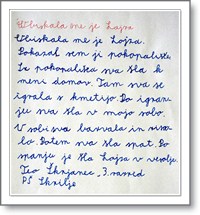 Obiskala me je Lojza
Obiskala me je Lojza.
Pokazal sem ji pokopališče.
Iz pokopališča sva šla k
meni domov. Tam sva se
igrala s kmetijo. Po igranju
sva šla v mojo sobo.
V sobi sva barvala in risala.
Potem sva šla spat. Po
spanju je šla Lojza v vesolje.
Teo Škrjanec, 3. razred
PŠ Škrilje